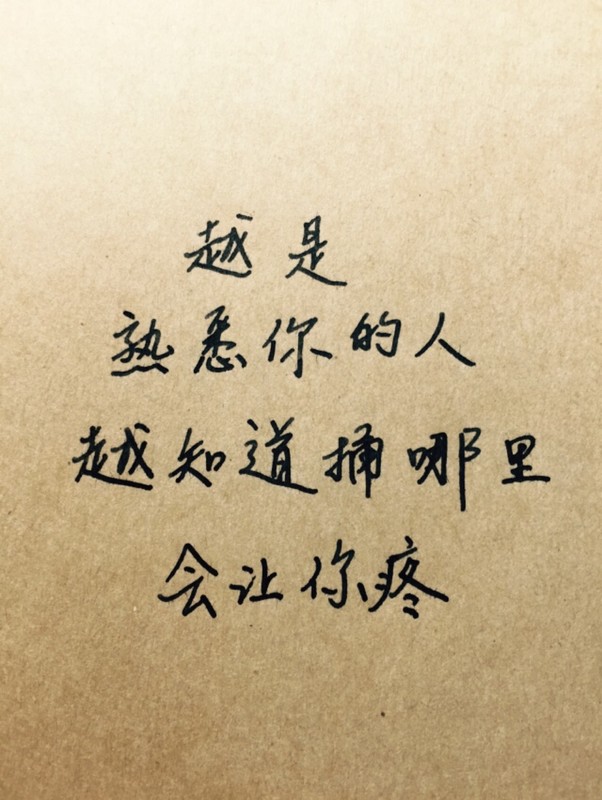 越是
熟悉你的人
越知道捅哪里
会让你疼